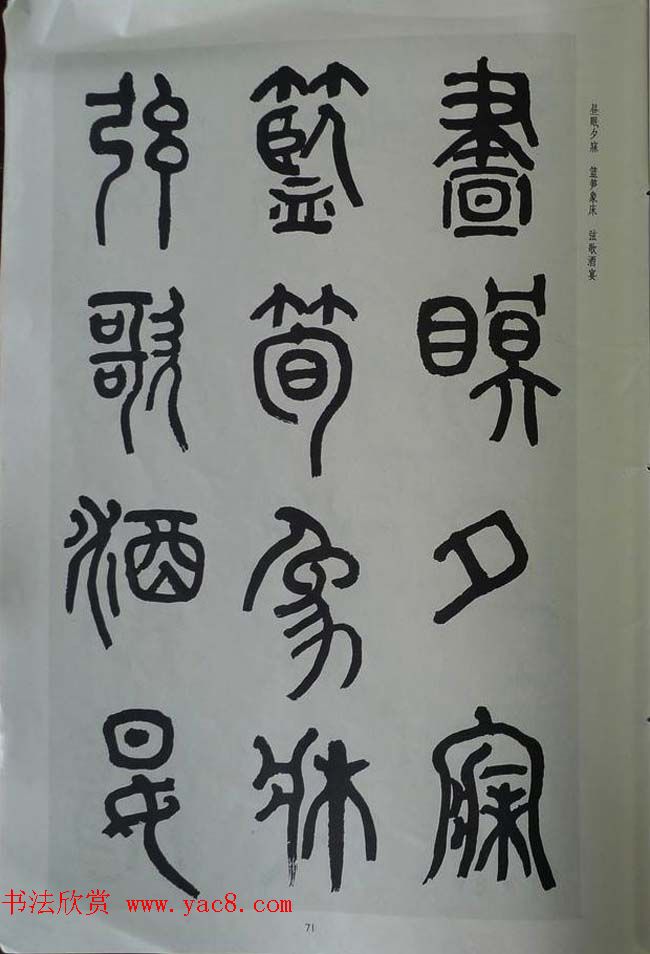 昼眠夕寐　篮笋象床　弦歌酒宴
晝瞑夕寐
籃筍象牀
弦歌酒妟
71
书法欣赏 www.yac8.com